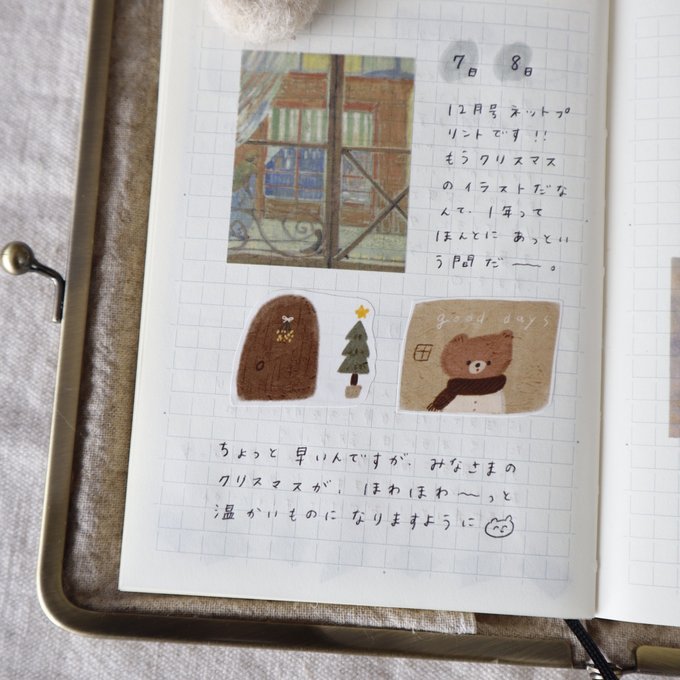 7日 8日
12月号 ネットプ
リントです!!
もうクリスマス
のイラストだな
んて、1年って
ほんとに あっとい
う間だ〜。
good days
ちょっと 早いんですが、みなさまの
クリスマスが、ほわほわ〜っと
温かいものに なりますように